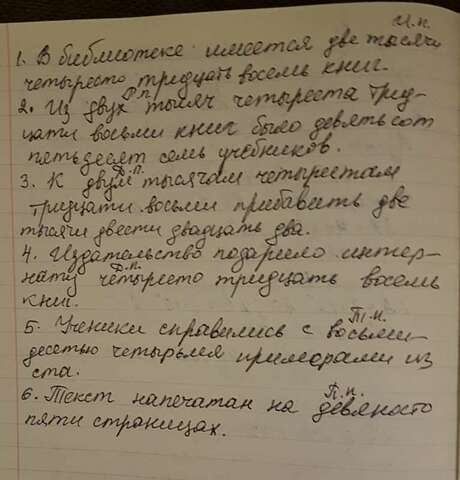 И.п.
1. В библиотеке имеется две тысячи
четыресто тридцать восемь книг.
Р.п.
2. Из двух тысяч четыреста трид-
цати восьми книг было девятьсот
пятьдесят семь учебников.
Д.п.
3. К двум тысячам четырестам
тридцати восьми прибавить две
тысячи двести двадцать два.
4. Издательство подарило интер-
В.п.
нату четыресто тридцать восемь
книг.
Т.п.
5. Ученики справились с восьми-
десятью четырьмя примерами из
ста.
П.п.
6. Текст напечатан на девяносто
пяти страницах.